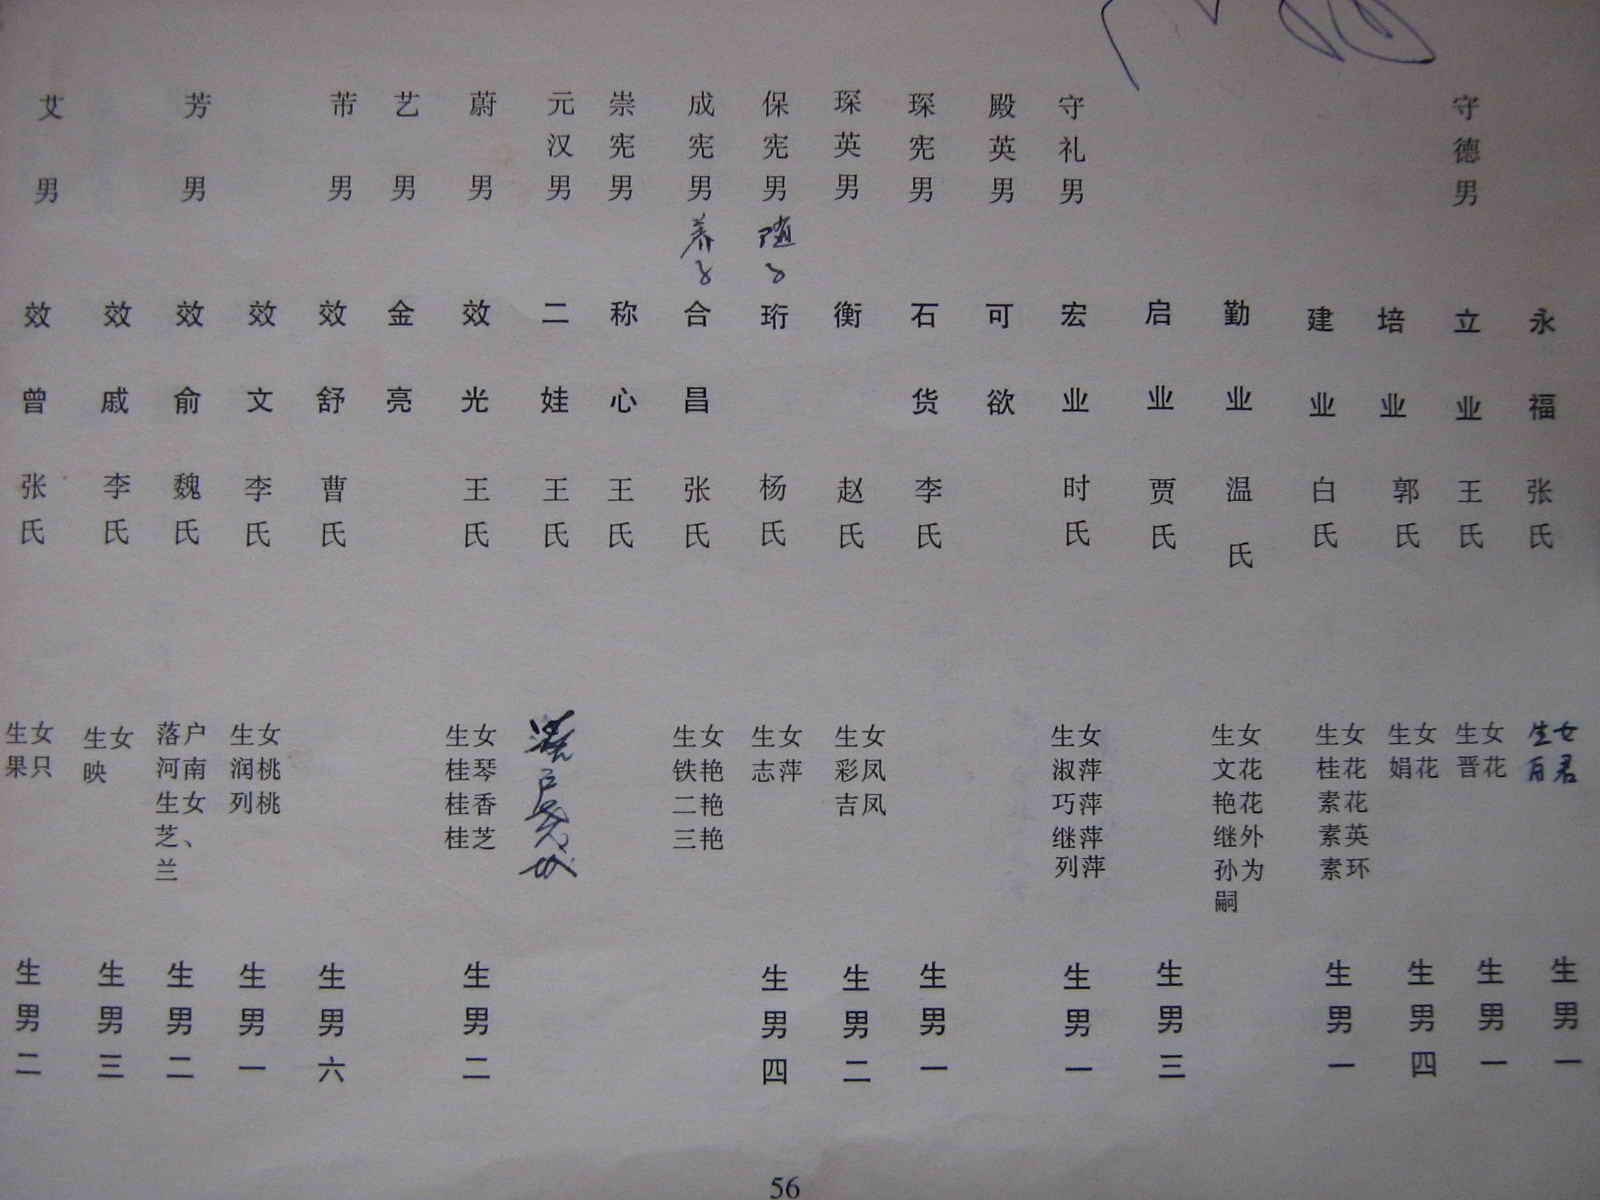 永福 张氏 生女 百君 生男一
守德男 立业 王氏 生女 晋花 生男一
培业 郭氏 生女 娟花 生男四
建业 白氏 生女 桂花 素花 素英 素环 生男一
勤业 温氏 生女 文花 艳花 继外孙为嗣
启业 贾氏 生男三
守礼男 宏业 时氏 生女 淑萍 巧萍 继萍 列萍 生男一
殿英男 可欲
琛宪男 石货 李氏 生男一
琛英男 衡 赵氏 生女 彩凤 吉凤 生男二
保宪男 随子 珩 杨氏 生女 志萍 生男四
成宪男 养子 合昌 张氏 生女 铁艳 二艳 三艳
崇宪男 称心 王氏
元汉男 二娃 王氏 落户
蔚男 效光 王氏 生女 桂琴 桂香 桂芝 生男二
艺男 金亮
芾男 效舒 曹氏 生男六
效文 李氏 生女 润桃 列桃 生男一
芳男 效俞 魏氏 落户河南生女芝、兰 生男二
效戚 李氏 生女 映 生男三
艾男 效曾 张氏 生女 果只 生男二
56